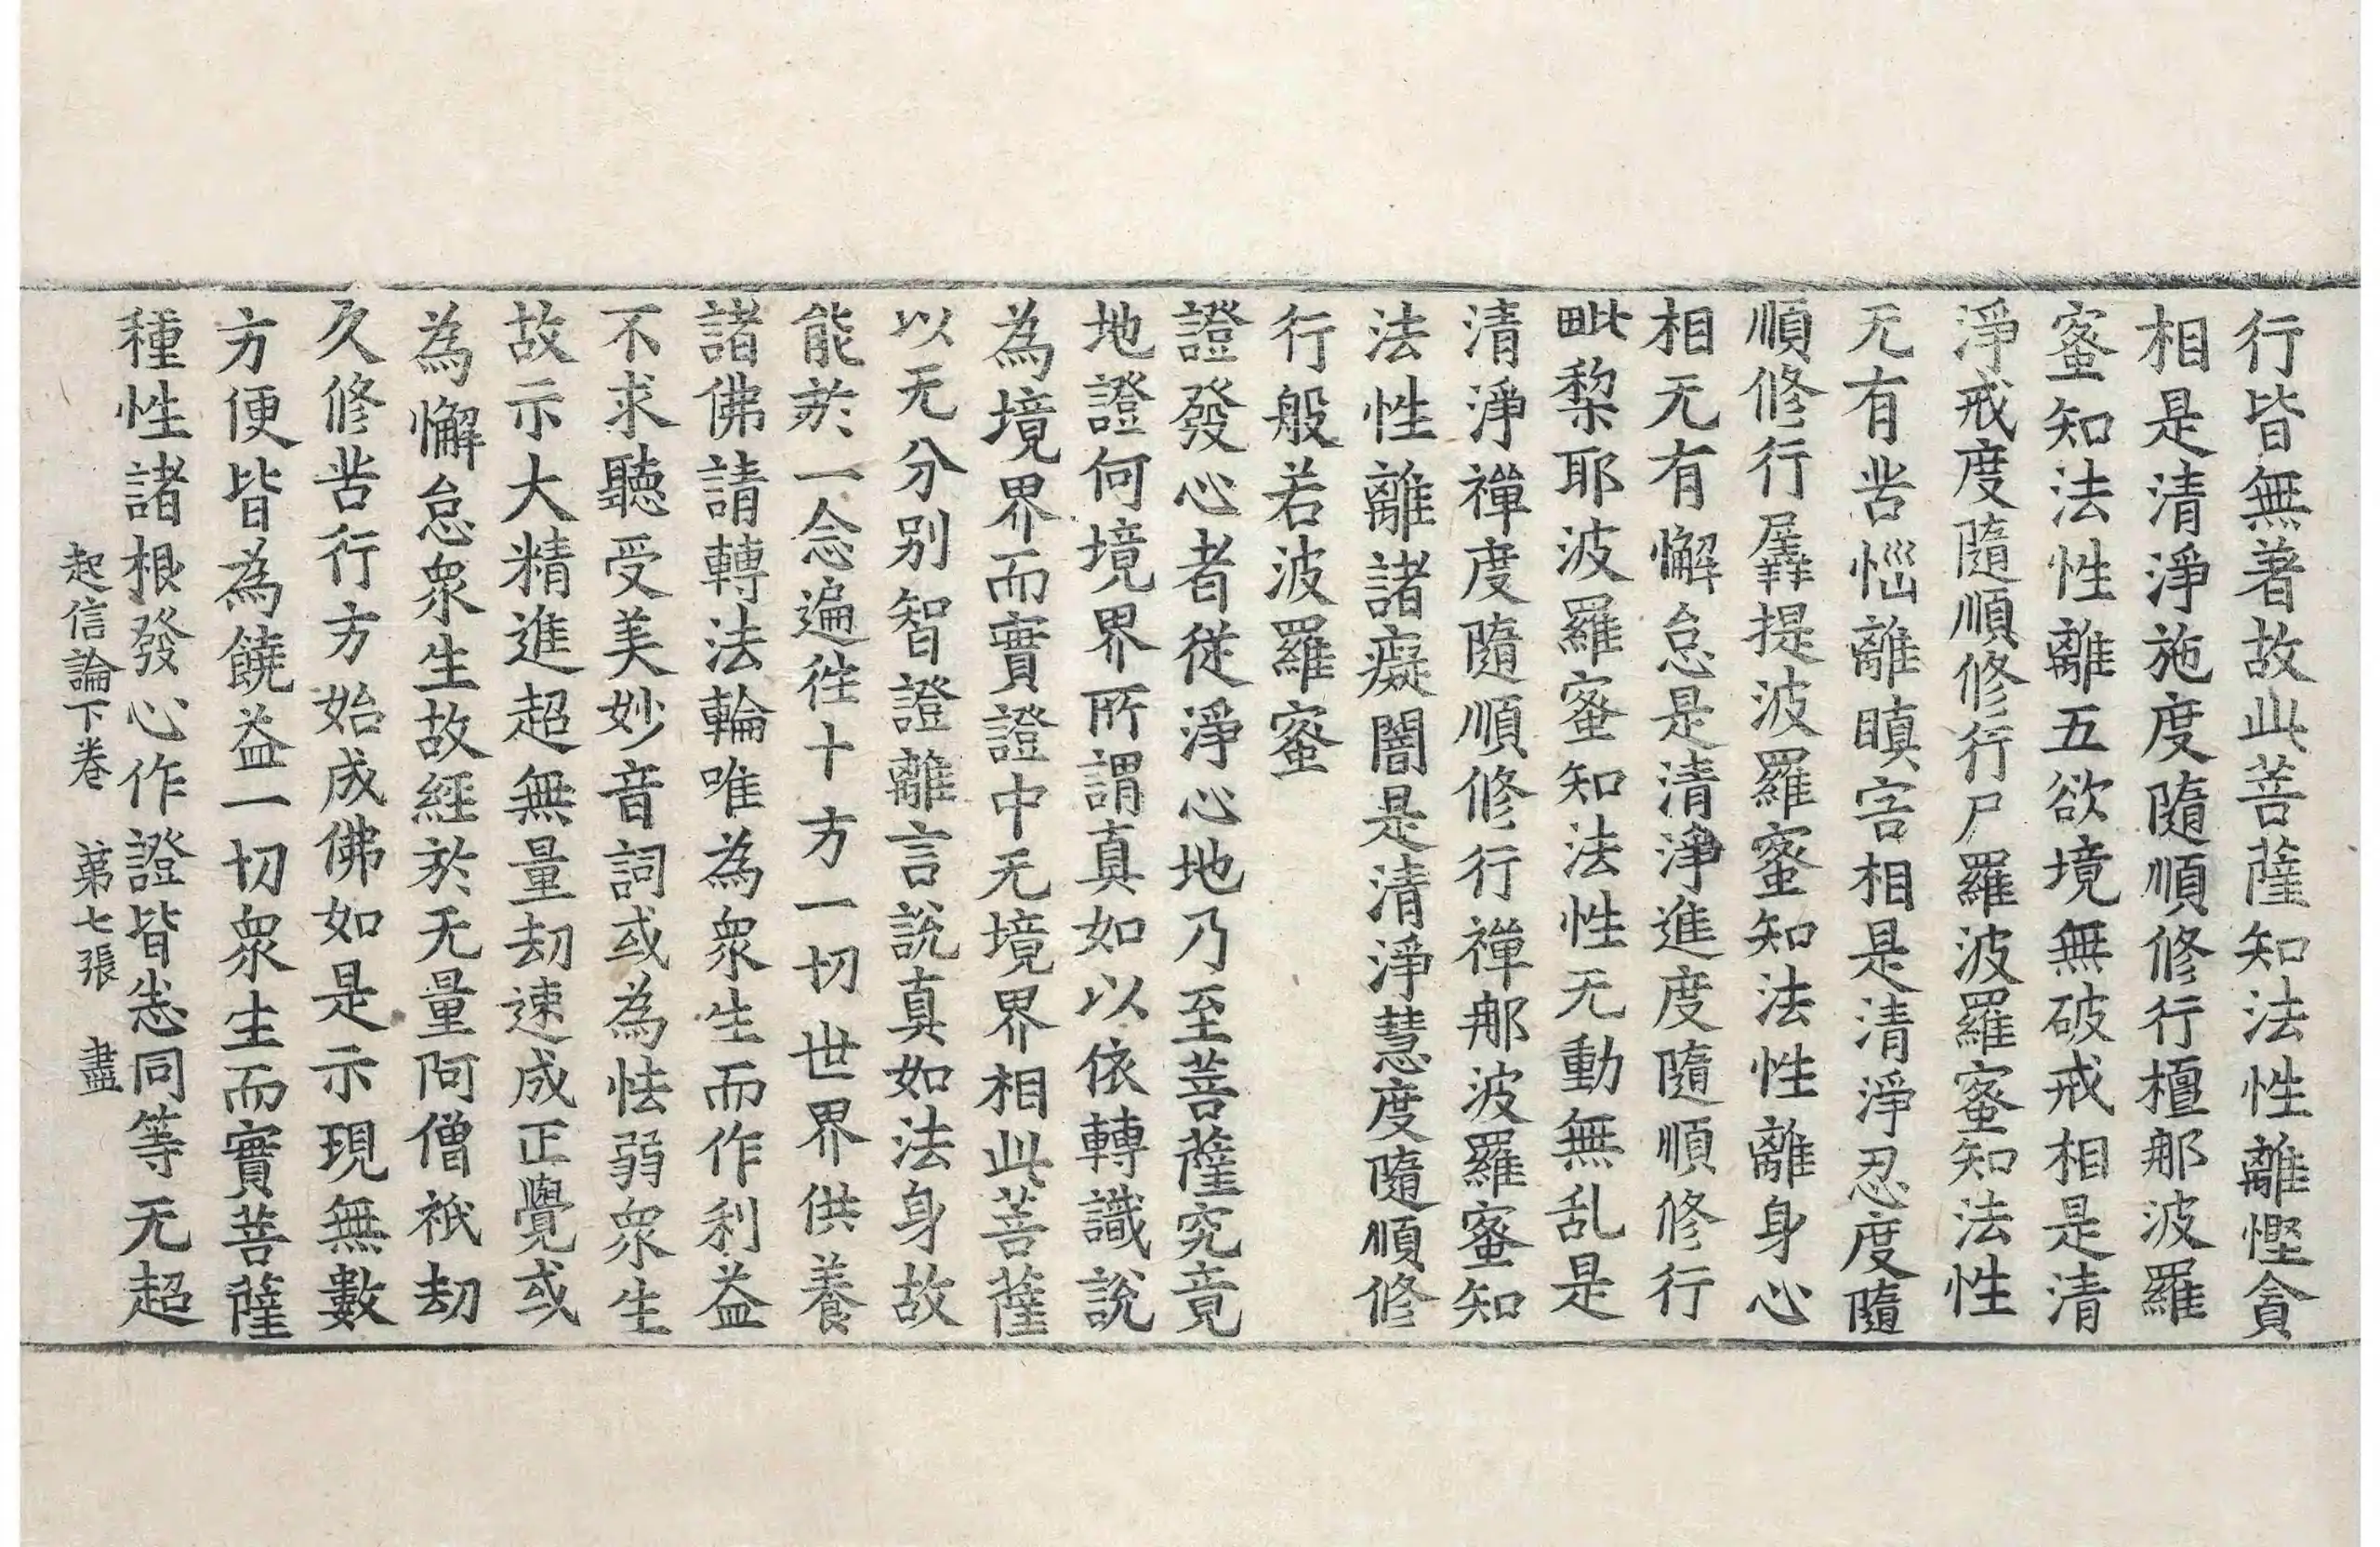 行皆無著故此菩薩知法性離慳貪
相是清淨施度隨順修行檀那波羅
蜜知法性離五欲境無破戒相是清
淨戒度隨順修行尸羅波羅蜜知法性
无有苦惱離瞋害相是清淨忍度隨
順修行羼提波羅蜜知法性離身心
相无有懈怠是清淨進度隨順修行
毗梨耶波羅蜜知法性无動無乱是
清淨禪度隨順修行禪那波羅蜜知
法性離諸癡闇是清淨慧度隨順修
行般若波羅蜜
證發心者從淨心地乃至菩薩究竟
地證何境界所謂真如以依轉識說
為境界而實證中无境界相此菩薩
以无分別智證離言說真如法身故
能於一念遍往十方一切世界供養
諸佛請轉法輪唯為衆生而作利益
不求聽受美妙音詞或為怯弱衆生
故示大精進超無量劫速成正覺或
為懈怠衆生故經於无量阿僧祇劫
久修苦行方始成佛如是示現無數
方便皆為饒益一切衆生而實菩薩
種性諸根發心作證皆悉同等无超
起信論下卷 第七張 盡